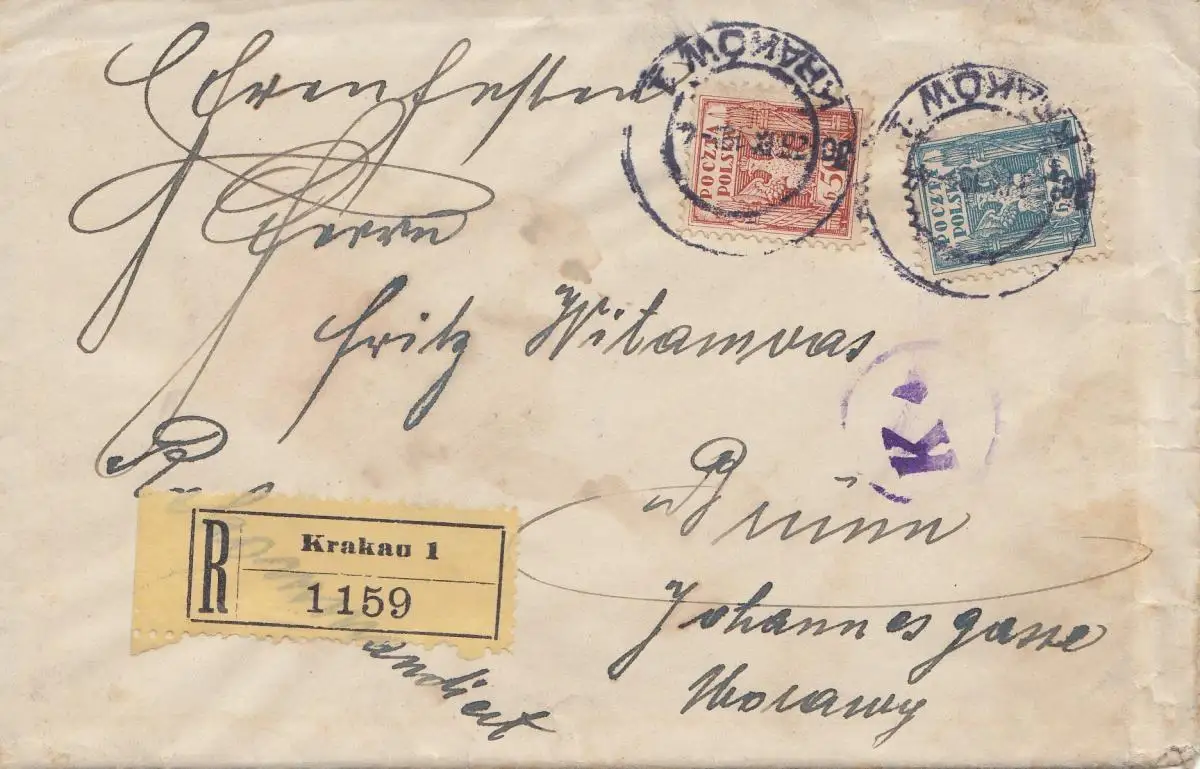 Ehrenfesten
Herrn
Fritz Witamwas
Brünn
Johannesgasse
Morawy
KRAKÓW 1
POCZTA
POLSKA
KRAKÓW 1
POCZTA
POLSKA
K
R
Krakau 1
1159